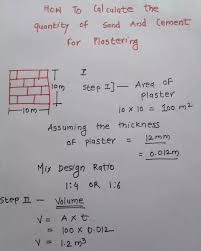 How To Calculate the
quantity of Sand And Cement
for Plastering
I
10m
Step I] - Area of
plaster
10 x 10 = 100 m²
10m
Assuming the thickness
of plaster = 12mm
= 0.012m
Mix Design Ratio
1:4 OR 1:6
Step II - Volume
V = A x t
= 100 x 0.012
V = 1.2 m³